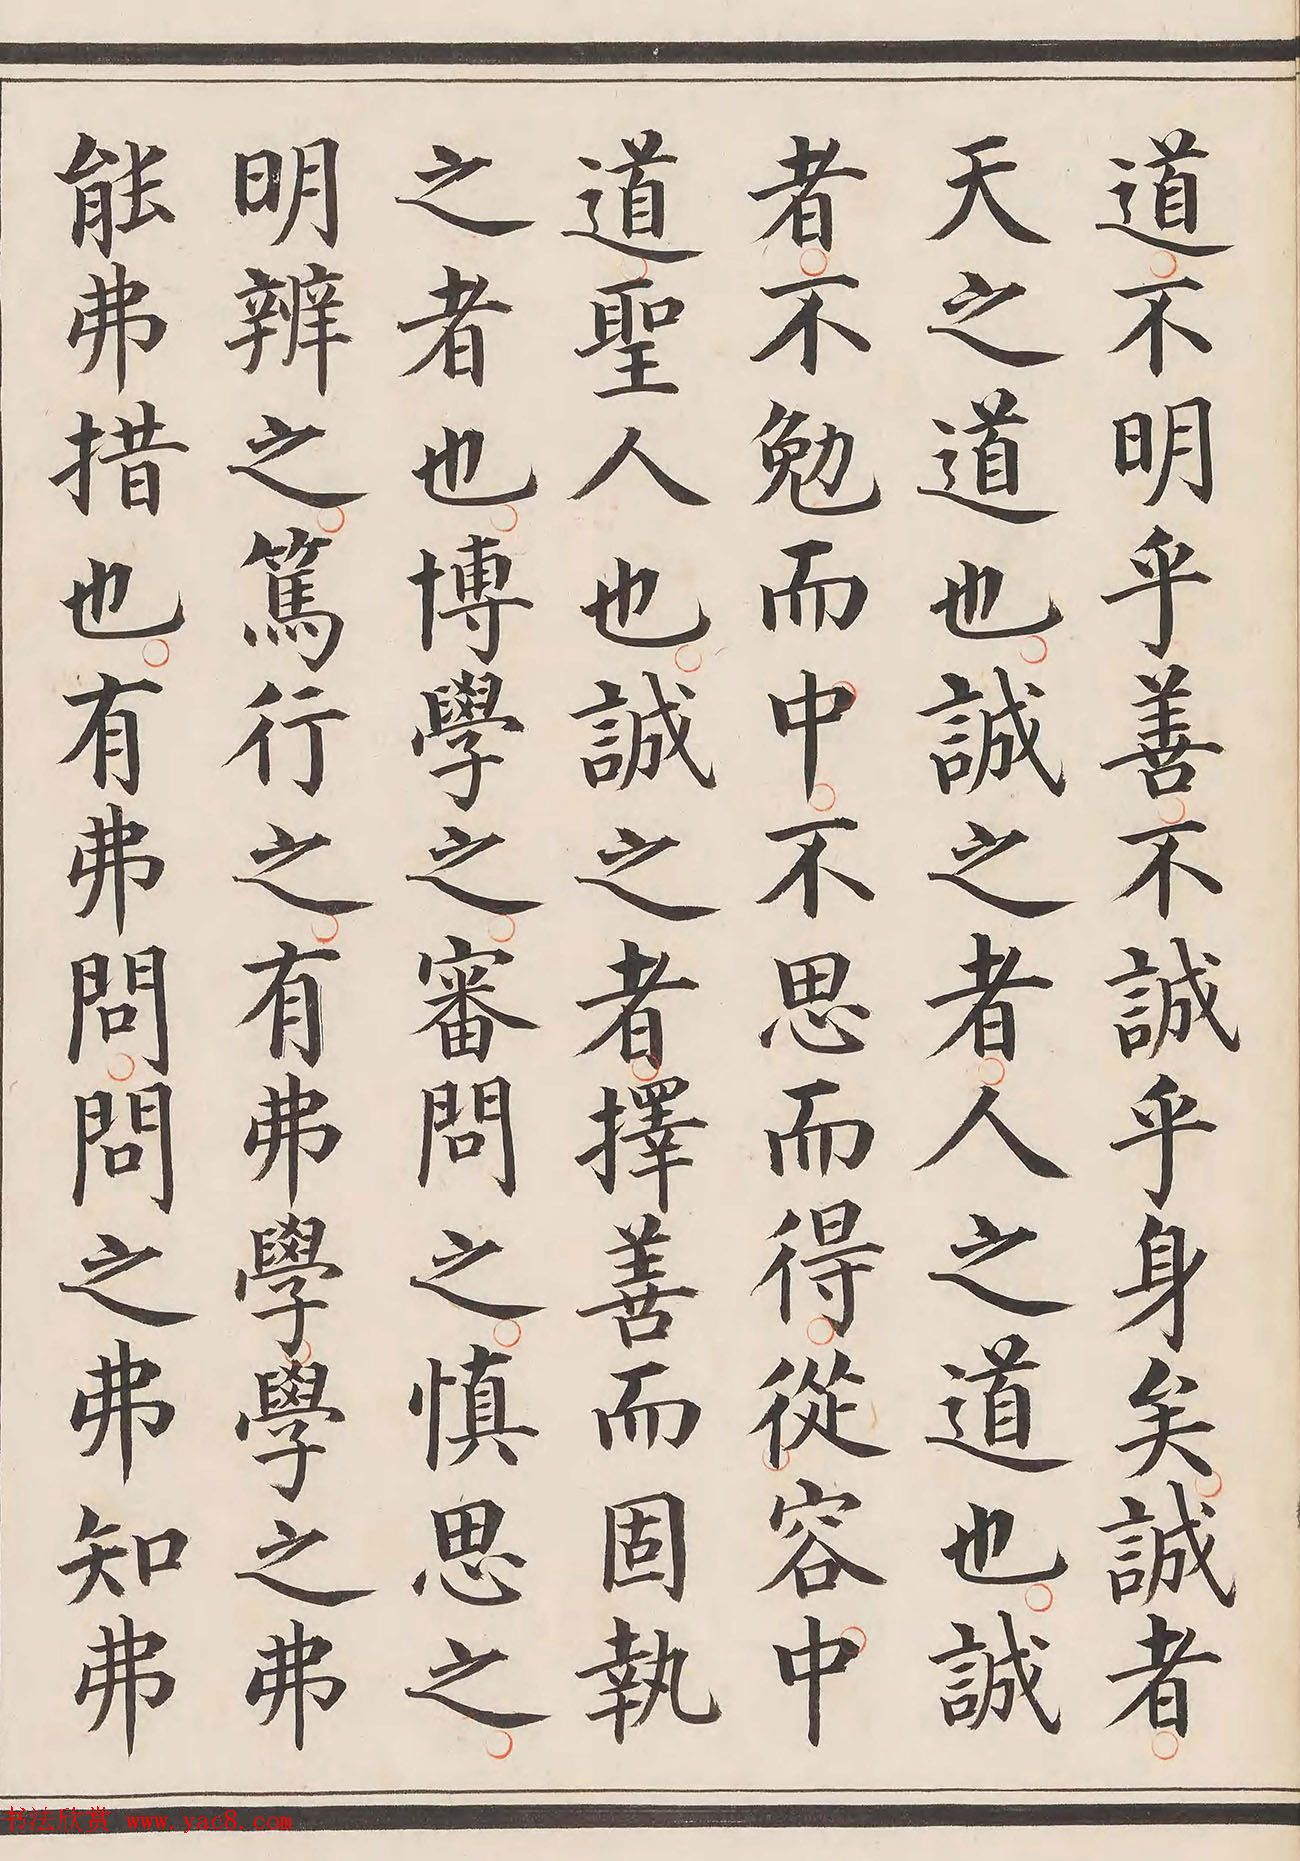 道不明乎善不誠乎身矣誠者
天之道也誠之者人之道也誠
者不勉而中不思而得從容中
道聖人也誠之者擇善而固執
之者也博學之審問之慎思之
明辨之篤行之有弗學學之弗
能弗措也有弗問問之弗知弗
书法欣赏 www.yac8.com